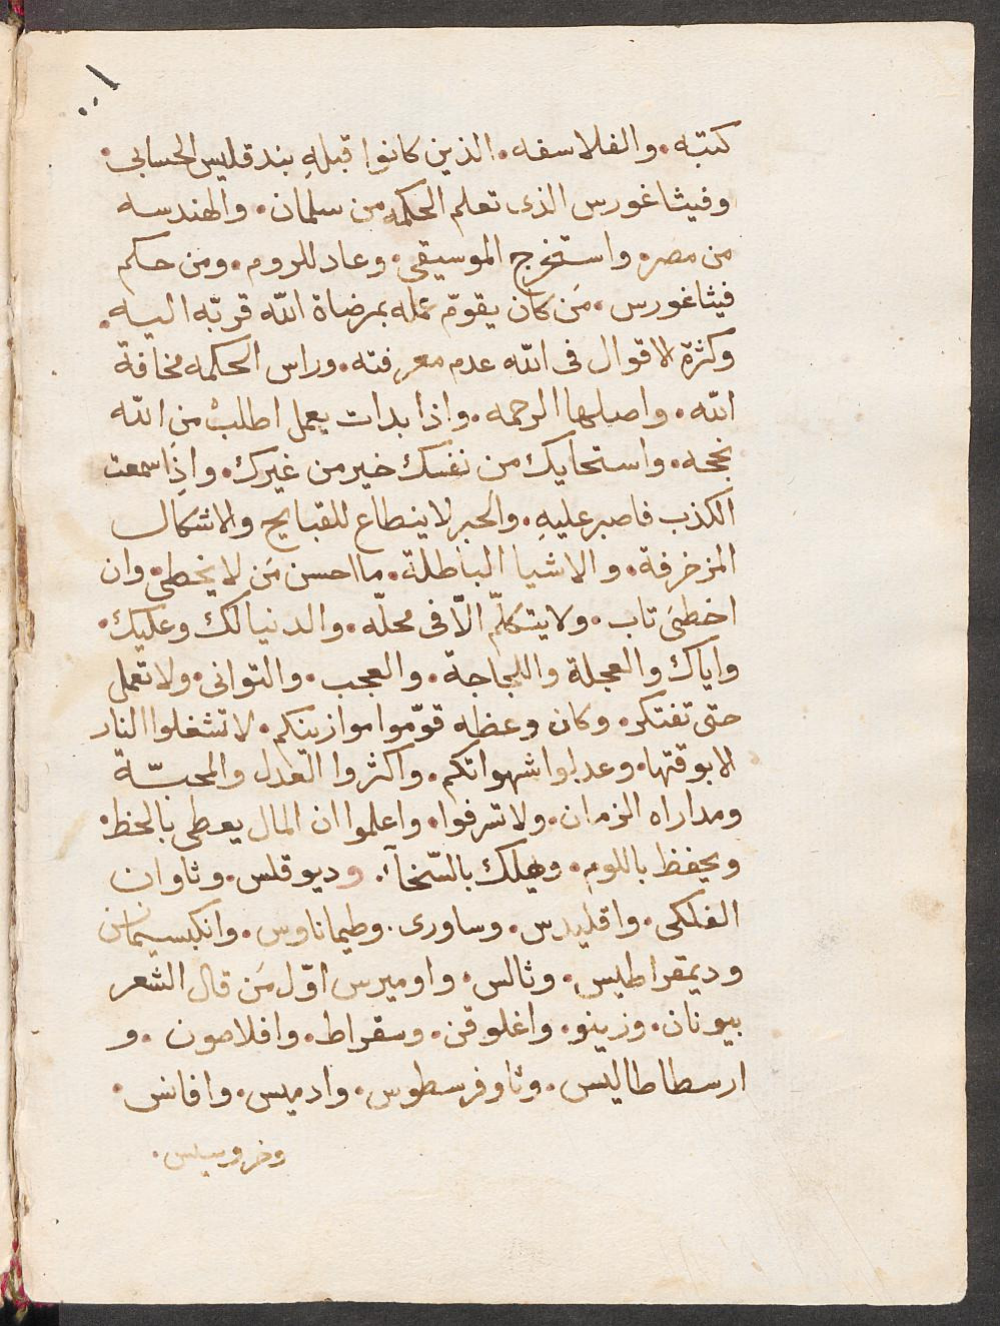 ١٠٠
كتبه. والفلاسفه. الذين كانوا قبلهِ بندقليس الحسابى.
وفيثاغورس الذى تعلم الحكمه من سلمان. والهندسه
من مصر. واستخرج الموسيقى. وعاد للروم. ومن حكم
فيثاغورس. مَن كان يقوّم عمله بمرضاة الله قربّه اليه.
وكثرة لاقوال فى الله عدم معرفته. وراس الحكمه مخافة
الله. واصلها الرحمه. واذا بدات بعمل اطلبْ مِن الله
نجحه. واستحايك من نفسك خير من غيرك. واذِا سمعت
الكذب فاصبر عليهِ. والحبر لا ينطاع للقبايح والاشكال
المزخرفة. والاشيا الباطلة. ما احسن مَن لا يخطى. وان
اخطىَ تاب. ولا يتكلّم الّا فى محلّه. والدنيا لك وعليك.
واياك والعجلة واللجاجة. والعجب. والتوانى. ولا تعمل
حتى تفتكر. وكان وعظه قوّموا موازينكم. لا تشغلوا النار
الا بوقتها. وعدلوا شهواتكم. واكثروا العدل والمحبّة
ومداراه الزمان. ولا تسرفوا. واعلموا ان المال يعطى بالحظ.
ويحفظ باللوم. ويهلك بالسّخآء. وديوقلس. وثاوان
الفلكى. واقليدس. وساورى. وطيماناوس. وانكبسيمانس
وديمقراطيس. وثالس. واوميرس اوّل مَن قال الشعر
بيونان. وزينو. واغلوقن. وسقراط. وافلاصون. و
ارسطاطاليس. وثاوفرسطوس. وادميس. وافانس.
وخروسبس.